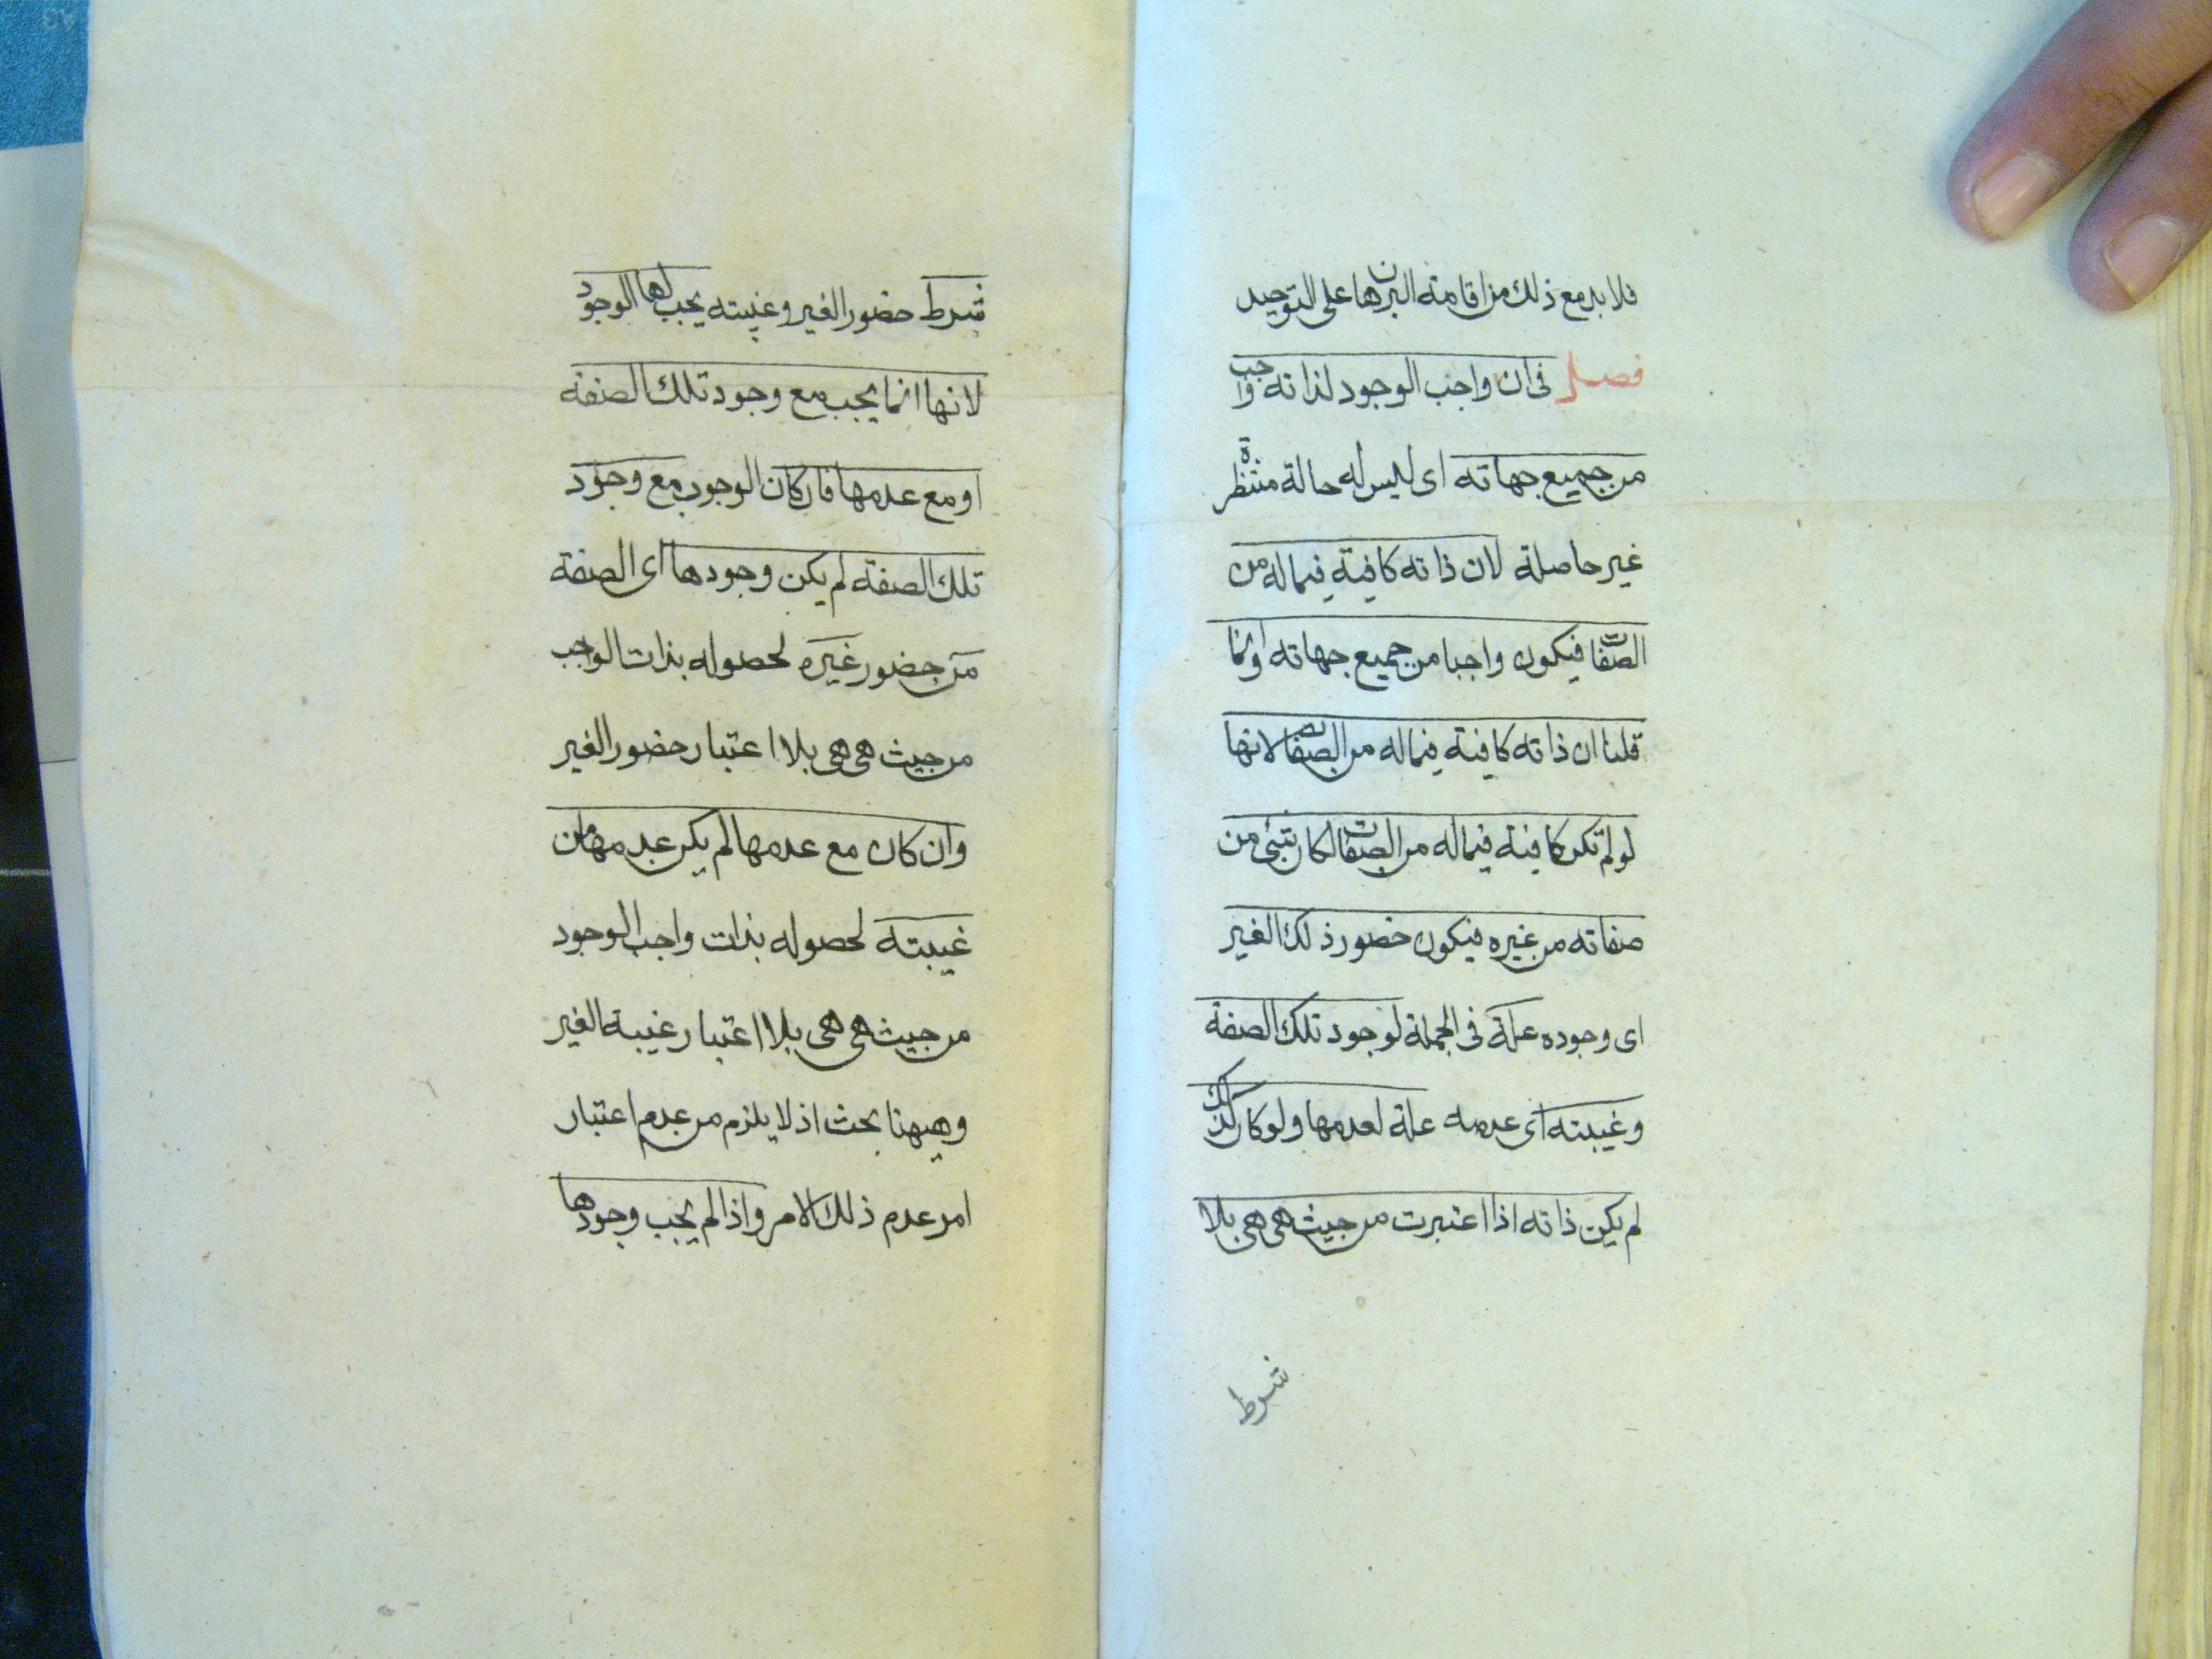 فلا بد مع ذلك من اقامة البرهان على التوحيد
فصل فى ان واجب الوجود لذاته واجب
من جميع جهاته اى ليس له حالة منتظرة
غير حاصلة لان ذاته كافية فيما له من
الصفات فيكون واجبا من جميع جهاته وانما
قلنا ان ذاته كافية فيما له من الصفات لانها
لو لم تكن كافية فيما له من الصفات لكان شئ من
صفاته من غيره فيكون حضور ذلك الغير
اى وجوده علة فى الجملة لوجود تلك الصفة
وغيبته اى عدمه علة لعدمها ولو كان كذلك
لم يكن ذاته اذا اعتبرت من حيث هى هى بلا
شرط
شرط حضور الغير وغيبته يجب لها الوجود
لانها انما يجب مع وجود تلك الصفة
او مع عدمها فان كان الوجوب مع وجود
تلك الصفة لم يكن وجودها اى الصفة
من حضور غيره لحصوله بذات الواجب
من حيث هى هى بلا اعتبار حضور الغير
وان كان مع عدمها لم يكن عدمها من
غيبته لحصوله بذات واجب الوجود
من حيث هى هى بلا اعتبار غيبة الغير
وهيهنا بحث اذ لا يلزم من عدم اعتبار
امر عدم ذلك الامر واذا لم يجب وجودها